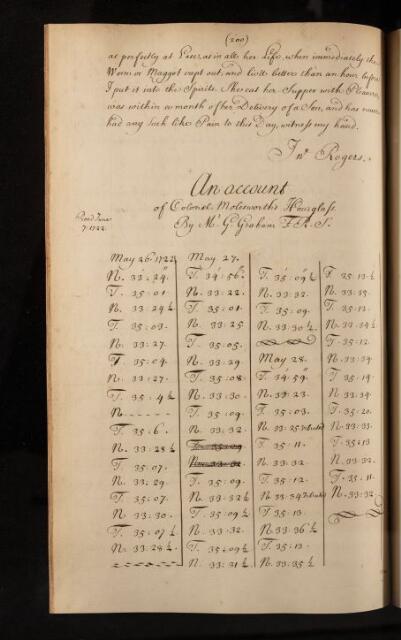 (200)
as perfectly at Ease, as in all her Life, when immediately the
Worm or Maggot crept out, and liv'd better than an hour before
I put it into the Spirits. She eat her Supper with Pleasure,
was within a month after Delivery of a Son, and has never
had any such like Pain to this Day, witness my hand.
Jnº Rogers.
An account
of Colonel Molesworth's Hourglass
By Mr G. Graham F.R.S.
Read June
7. 1722.
May 26. 1722
N. 33. 24.
T. 35:01.
N. 33:24½
T. 35:03.
N. 33:27.
T. 35:04.
N. 33:27.
T. 35:4½
N.
T. 35:6.
N. 33:28½
T. 35:07.
N. 33:29.
T. 35:07.
N. 33:30.
T. 35:07½
N. 33:28½
May 27.
T. 34:56.
N. 33:22.
T. 35:01.
N. 33:25
T. 35:05.
N. 33:29
T. 35:08.
N. 33:30.
T. 35:09.
N. 33:32
T. 35:09.
N. 33:32½
T. 35:09½
N. 33:32.
T. 35:09½
N. 33:31½
T. 35:09½
N. 33:32.
T. 35:09.
N. 33:30½
May 28.
T. 34:59.
N. 33:23.
T. 35:03.
N. 33:25
T. 35:11.
N. 33:32
T. 35:12.
N. 33:34
T. 35:13.
N. 33:36½
T. 35:13.
N. 33:35½
T. 35:13.
N. 33:35.
T. 35:12.
N. 33:34½
T. 35:12.
N. 33:34
T. 35:14.
N. 33:34.
T. 35:20.
N. 33:33.
T. 35:13
N. 33:32.
T. 35:11.
N. 33:32